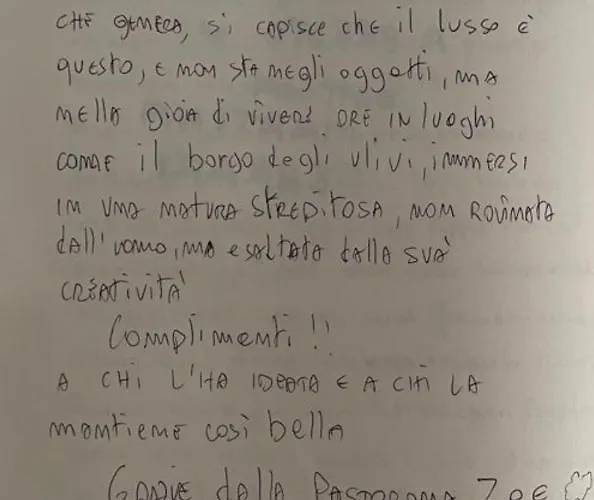 CHE GENERA, si capisce che il lusso è
questo, E NON STA NEGLI oggetti, MA
NELLA gioia di vivere ORE IN luoghi
COME il borgo degli ulivi, immersi
IN UNA NATURA STREPITOSA, NON ROVINATA
dall'uomo, ma esaltata dalla SUA
CREATIVITÀ
Complimenti!!
A CHI L'HA IDEATA E A CHI LA
mantiene così bella
GRAZIE dalla